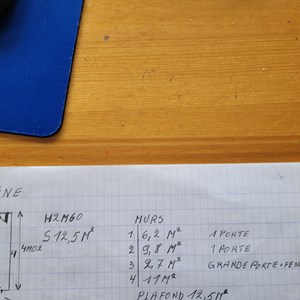 NE
H2M60 MURS
S 12,5 M² 1 6,2 M² 1 PORTE
4M02 2 9,8 M² 1 PORTE
4 3 2,7 M² GRANDE PORTE + FEN
4 11 M²
PLAFOND 12,5 M²